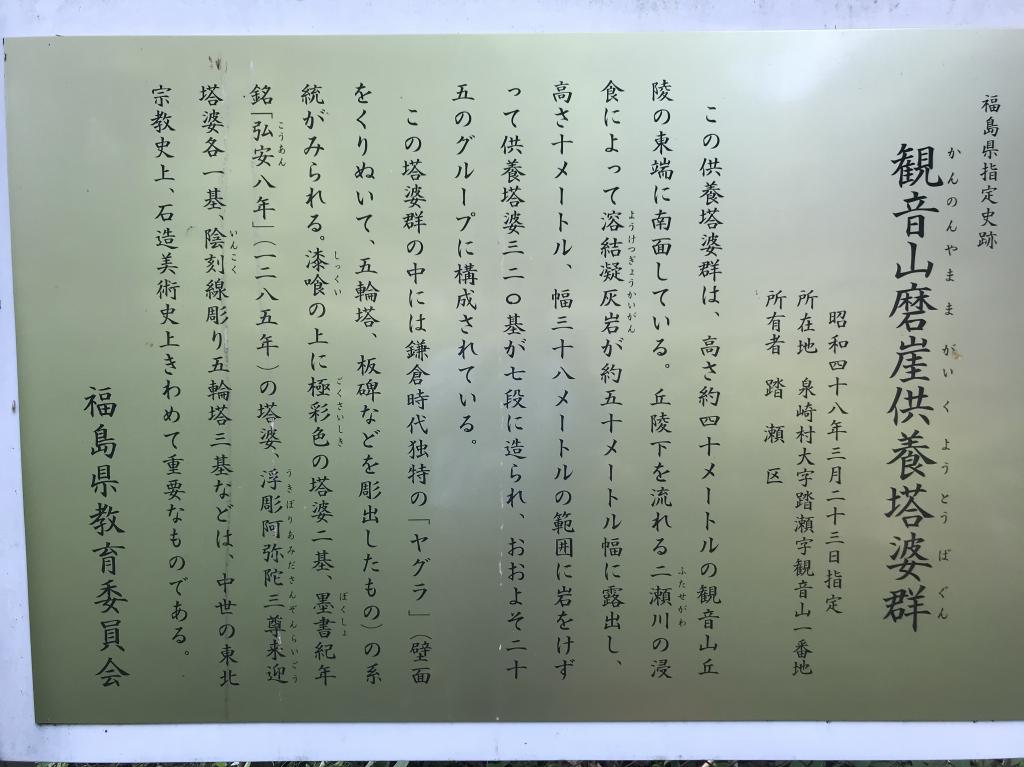 福島県指定史跡
観音山磨崖供養塔婆群
かんのんやままがいくようとうばぐん
昭和四十八年三月二十三日指定
所在地　泉崎村大字踏瀬字観音山一番地
所有者　踏瀬区
この供養塔婆群は、高さ約四十メートルの観音山丘
陵の東端に南面している。丘陵下を流れる二瀬川の浸
ふたせがわ
食によって溶結凝灰岩が約五十メートル幅に露出し、
ようけつぎょうかいがん
高さ十メートル、幅三十八メートルの範囲に岩をけず
って供養塔婆三二〇基が七段に造られ、おおよそ二十
五のグループに構成されている。
この塔婆群の中には鎌倉時代独特の「ヤグラ」（壁面
をくりぬいて、五輪塔、板碑などを彫出したもの）の系
統がみられる。漆喰の上に極彩色の塔婆二基、墨書紀年
しっくい　ごくさいしき　ぼくしょ
銘「弘安八年」（一二八五年）の塔婆、浮彫阿弥陀三尊来迎
こうあん　うきぼりあみださんぞんらいごう
塔婆各一基、陰刻線彫り五輪塔三基などは、中世の東北
いんこく
宗教史上、石造美術史上きわめて重要なものである。
福島県教育委員会